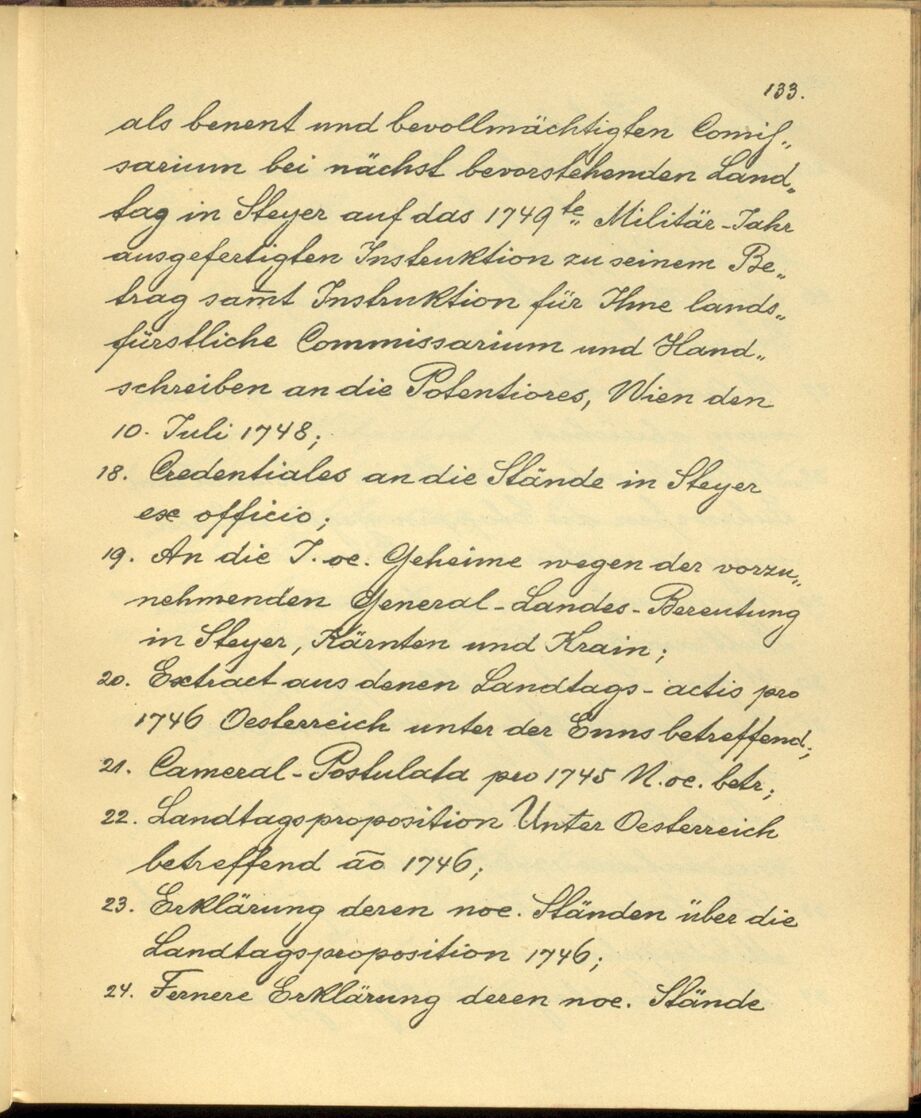 133.
als benent und bevollmächtigten Comis„
sarium bei nächst bevorstehenden Land„
tag in Steyer auf das 1749te„ Militär-Jahr
ausgefertigten Instruktion zu seinem Be„
trag sam̅t Instruktion für Ihne lands„
fürstliche Commissarium und Hand„
schreiben an die Potentiores, Wien den
10. Juli 1748;
18. Credentiales an die Stände in Steyer
ex officio;
19. An die I. oe. Geheime wegen der vorzu„
nehmenden General-Landes-Bereutung
in Steyer, Kärnten und Krain;
20. Extract aus denen Landtags-actis pro
1746 Oesterreich unter der Enns betreffend;
21. Cameral-Postulata pro 1745 N. oe. betr;
22. Landtagsproposition Unter Oesterreich
betreffend āo 1746;
23. Erklärung deren noe. Ständen über die
Landtagsproposition 1746;
24. Fernere Erklärung deren noe. Stände